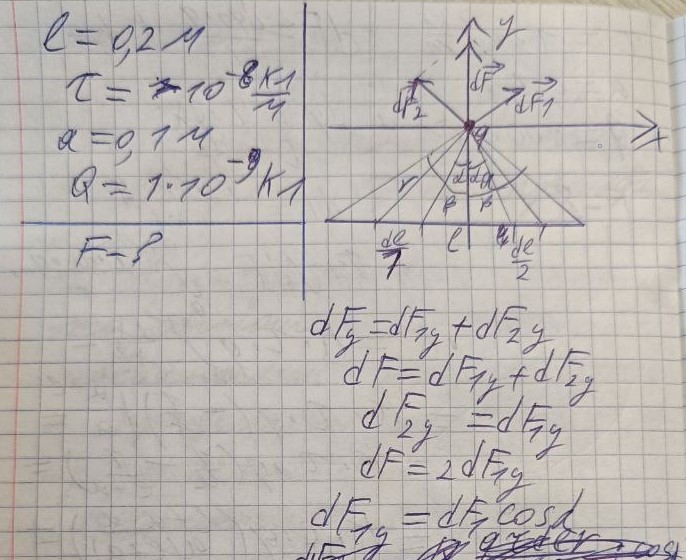 l = 0,2 м
τ = 10⁻⁸ Кл/м
a = 0,1 м
Q = 1·10⁻⁹ Кл
F - ?
y
dF
dF₂
dF₁
q
x
r
α
β
β
dl
l
dl/2
dFy = dF₁y + dF₂y
dF = dF₁y + dF₂y
dF₂y = dF₁y
dF = 2dF₁y
dF₁y = dF₁ cosα